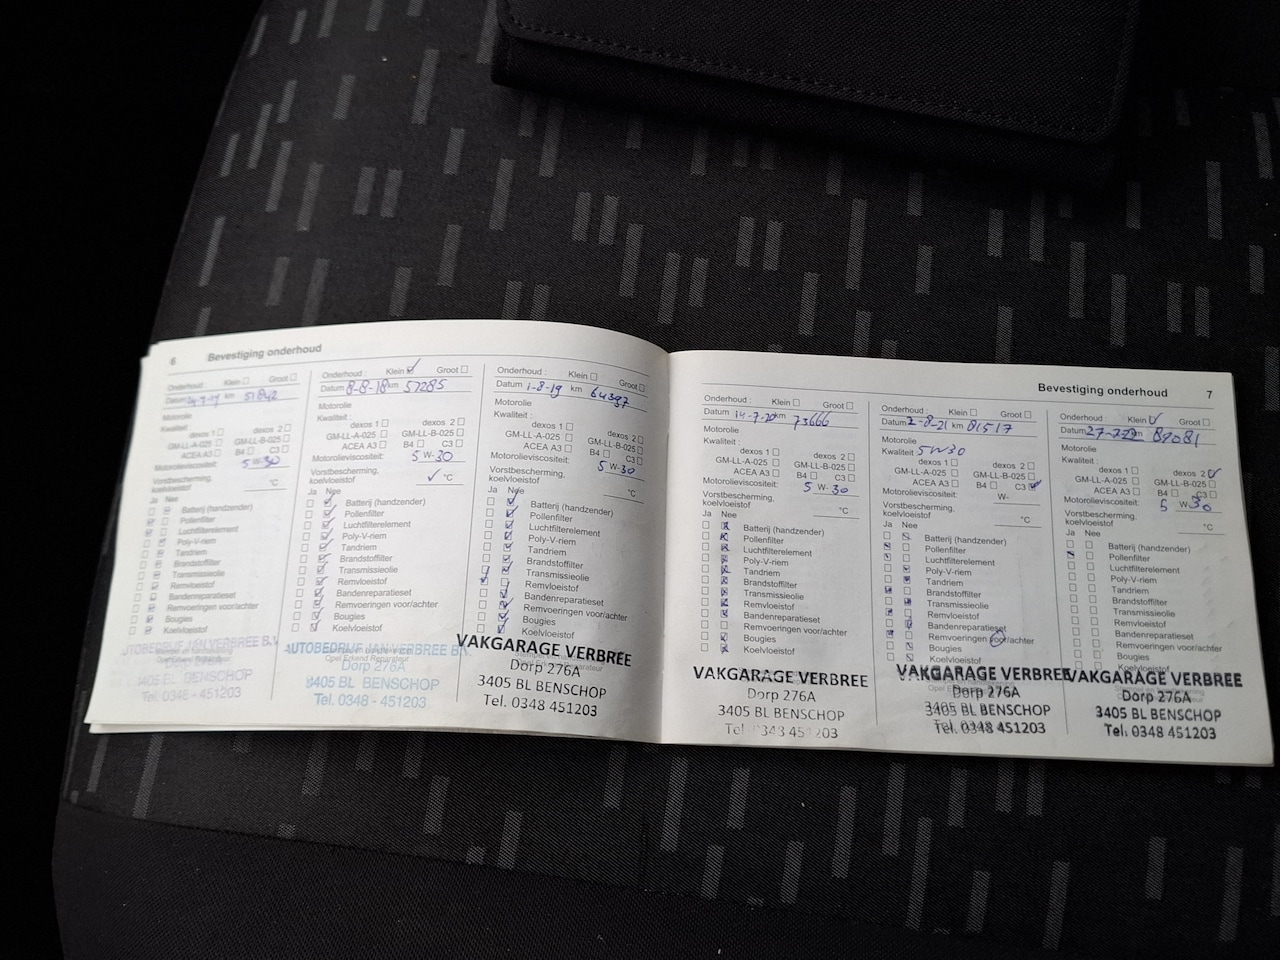 6 Bevestiging onderhoud
Onderhoud : Klein Groot
Datum km 51842
Motorolie
Kwaliteit
dexos 1 dexos 2
GM-LL-A-025 GM-LL-B-025
ACEA A3 B4 C3
Motorolieviscositeit: 5 W-30
Vorstbescherming,
koelvloeistof °C
Ja Nee
Batterij (handzender)
Pollenfilter
Luchtfilterelement
Poly-V-riem
Tandriem
Brandstoffilter
Transmissieolie
Remvloeistof
Bandenreparatieset
Remvoeringen voor/achter
Bougies
Koelvloeistof
VERBREE B.V.
3405 BL BENSCHOP
Tel. 0348 - 451203
Onderhoud : Klein Groot
Datum 8-8-18 km 57285
Motorolie
Kwaliteit :
dexos 1 dexos 2
GM-LL-A-025 GM-LL-B-025
ACEA A3 B4 C3
Motorolieviscositeit: 5 W-30
Vorstbescherming,
koelvloeistof °C
Ja Nee
Batterij (handzender)
Pollenfilter
Luchtfilterelement
Poly-V-riem
Tandriem
Brandstoffilter
Transmissieolie
Remvloeistof
Bandenreparatieset
Remvoeringen voor/achter
Bougies
Koelvloeistof
AUTOBEDRIJF JAN VERBREE
Opel Erkend Reparateur
Dorp 276A
3405 BL BENSCHOP
Tel. 0348 - 451203
Onderhoud : Klein Groot
Datum 1-8-19 km 64397
Motorolie
Kwaliteit :
dexos 1 dexos 2
GM-LL-A-025 GM-LL-B-025
ACEA A3 B4 C3
Motorolieviscositeit: 5 W-30
Vorstbescherming,
koelvloeistof °C
Ja Nee
Batterij (handzender)
Pollenfilter
Luchtfilterelement
Poly-V-riem
Tandriem
Brandstoffilter
Transmissieolie
Remvloeistof
Bandenreparatieset
Remvoeringen voor/achter
Bougies
Koelvloeistof
VAKGARAGE VERBREE
Dorp 276A
3405 BL BENSCHOP
Tel. 0348 451203
Bevestiging onderhoud 7
Onderhoud : Klein Groot
Datum 14-7-20 km 73666
Motorolie
Kwaliteit :
dexos 1 dexos 2
GM-LL-A-025 GM-LL-B-025
ACEA A3 B4 C3
Motorolieviscositeit: 5 W-30
Vorstbescherming,
koelvloeistof °C
Ja Nee
Batterij (handzender)
Pollenfilter
Luchtfilterelement
Poly-V-riem
Tandriem
Brandstoffilter
Transmissieolie
Remvloeistof
Bandenreparatieset
Remvoeringen voor/achter
Bougies
Koelvloeistof
VAKGARAGE VERBREE
Dorp 276A
3405 BL BENSCHOP
Tel. 0348 451203
Onderhoud : Klein Groot
Datum 2-8-21 km 81517
Motorolie
Kwaliteit 5W30
dexos 1 dexos 2
GM-LL-A-025 GM-LL-B-025
ACEA A3 B4 C3
Motorolieviscositeit: W-
Vorstbescherming,
koelvloeistof °C
Ja Nee
Batterij (handzender)
Pollenfilter
Luchtfilterelement
Poly-V-riem
Tandriem
Brandstoffilter
Transmissieolie
Remvloeistof
Bandenreparatieset
Remvoeringen voor/achter
Bougies
Koelvloeistof
VAKGARAGE VERBREE
Dorp 276A
3405 BL BENSCHOP
Tel. 0348 451203
Onderhoud : Klein Groot
Datum km 89081
Motorolie
Kwaliteit :
dexos 1 dexos 2
GM-LL-A-025 GM-LL-B-025
ACEA A3 B4 C3
Motorolieviscositeit: 5 W-30
Vorstbescherming,
koelvloeistof °C
Ja Nee
Batterij (handzender)
Pollenfilter
Luchtfilterelement
Poly-V-riem
Tandriem
Brandstoffilter
Transmissieolie
Remvloeistof
Bandenreparatieset
Remvoeringen voor/achter
Bougies
Koelvloeistof
VAKGARAGE VERBREE
Dorp 276A
3405 BL BENSCHOP
Tel. 0348 451203